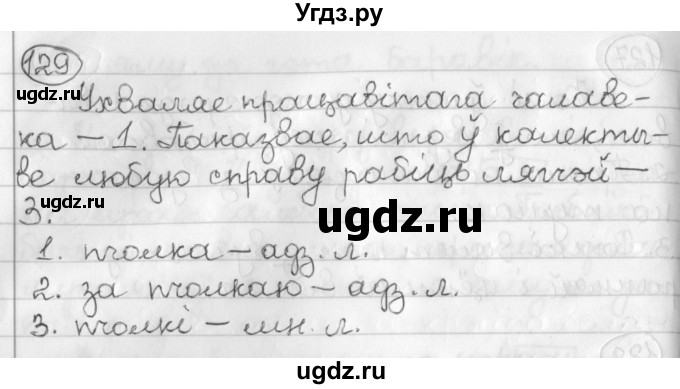 Угдз.ру
129
ugdz.ru
127
Ухваляе працавітага чалаве-
ка – 1. Паказвае, што ў калекты-
ugdz.ru
ве любую справу рабіць лягчэй –
3.
ugdz.ru
1. пчолка – адз. л.
2. за пчолкаю – адз. л.
3. пчолкі – мн. л.
ugdz.ru
ugdz.ru